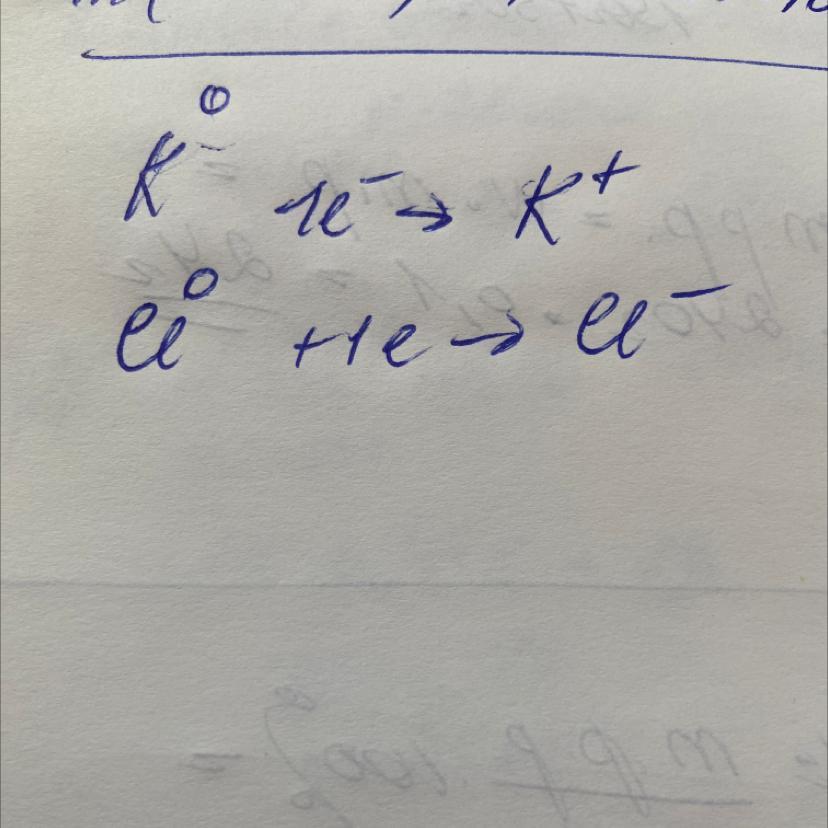 K⁰ -1e⁻ → K⁺
Cl⁰ +1e → Cl⁻